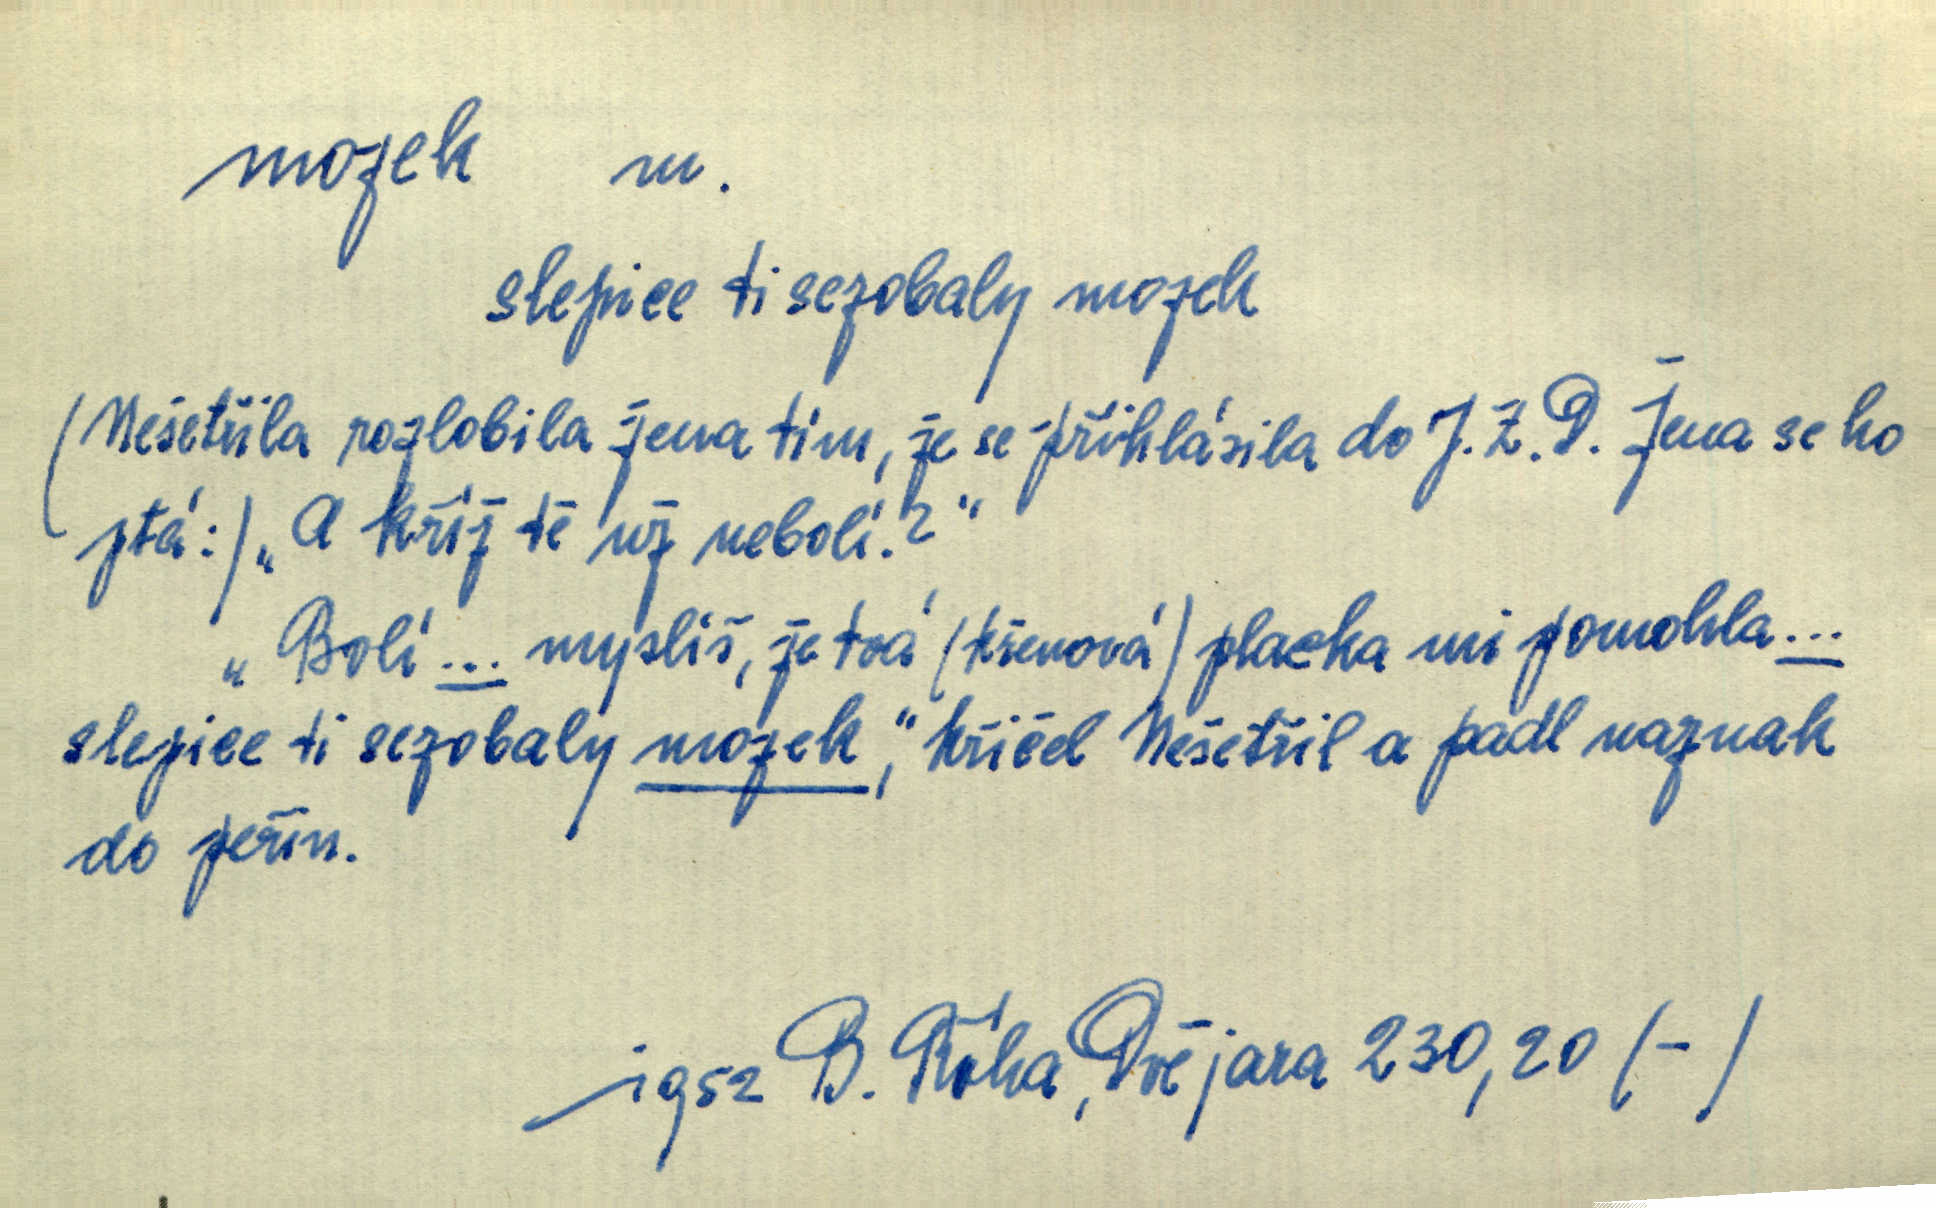 mozek m.
slepice ti sezobaly mozek
(Nešetřila rozlobila žena tím, že se přihlásila do J.Ž.D. Žena se ho
ptá:) „A kříž tě už nebolí.?"
„Bolí ... myslíš, že tvá (křenová) placka mi pomohla...
slepice ti sezobaly mozek," křičel Nešetřil a padl naznak
do peřin.
1952 B. Říha, Dvě jara 230, 20 (-)